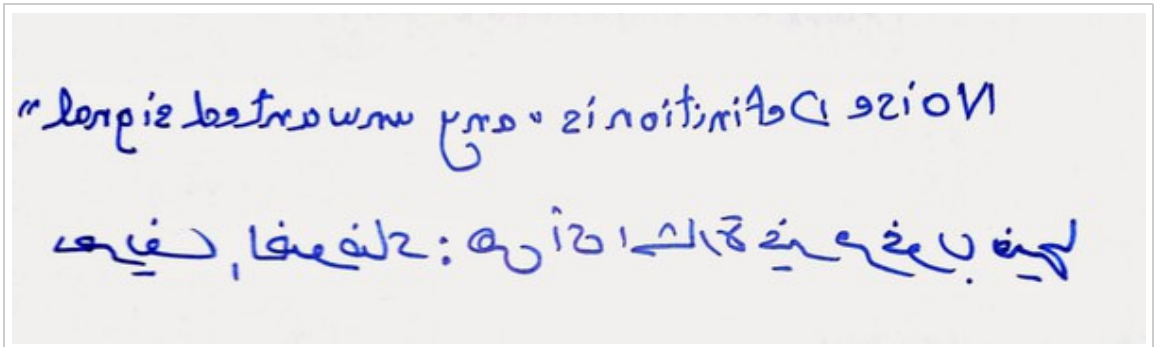 Noise Definition is "any unwanted signal"
تعريف الضوضاء : هي أي اشارة غير مرغوب فيها